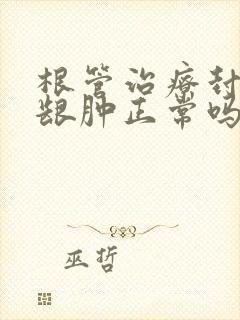 根管治疗封
龈肿正常吗
巫哲